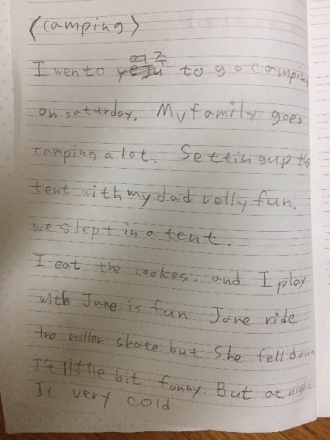 <camping>
I wen to 여주 to go camping
on saturday. My family goes
camping a lot. Setting up the
tent with my dad velly fun.
we slept in a tent.
I eat the cookes. and I play
with Jane is fun Jane ride
the roller skate but she fell down
It little bit funny But at night
It very cold